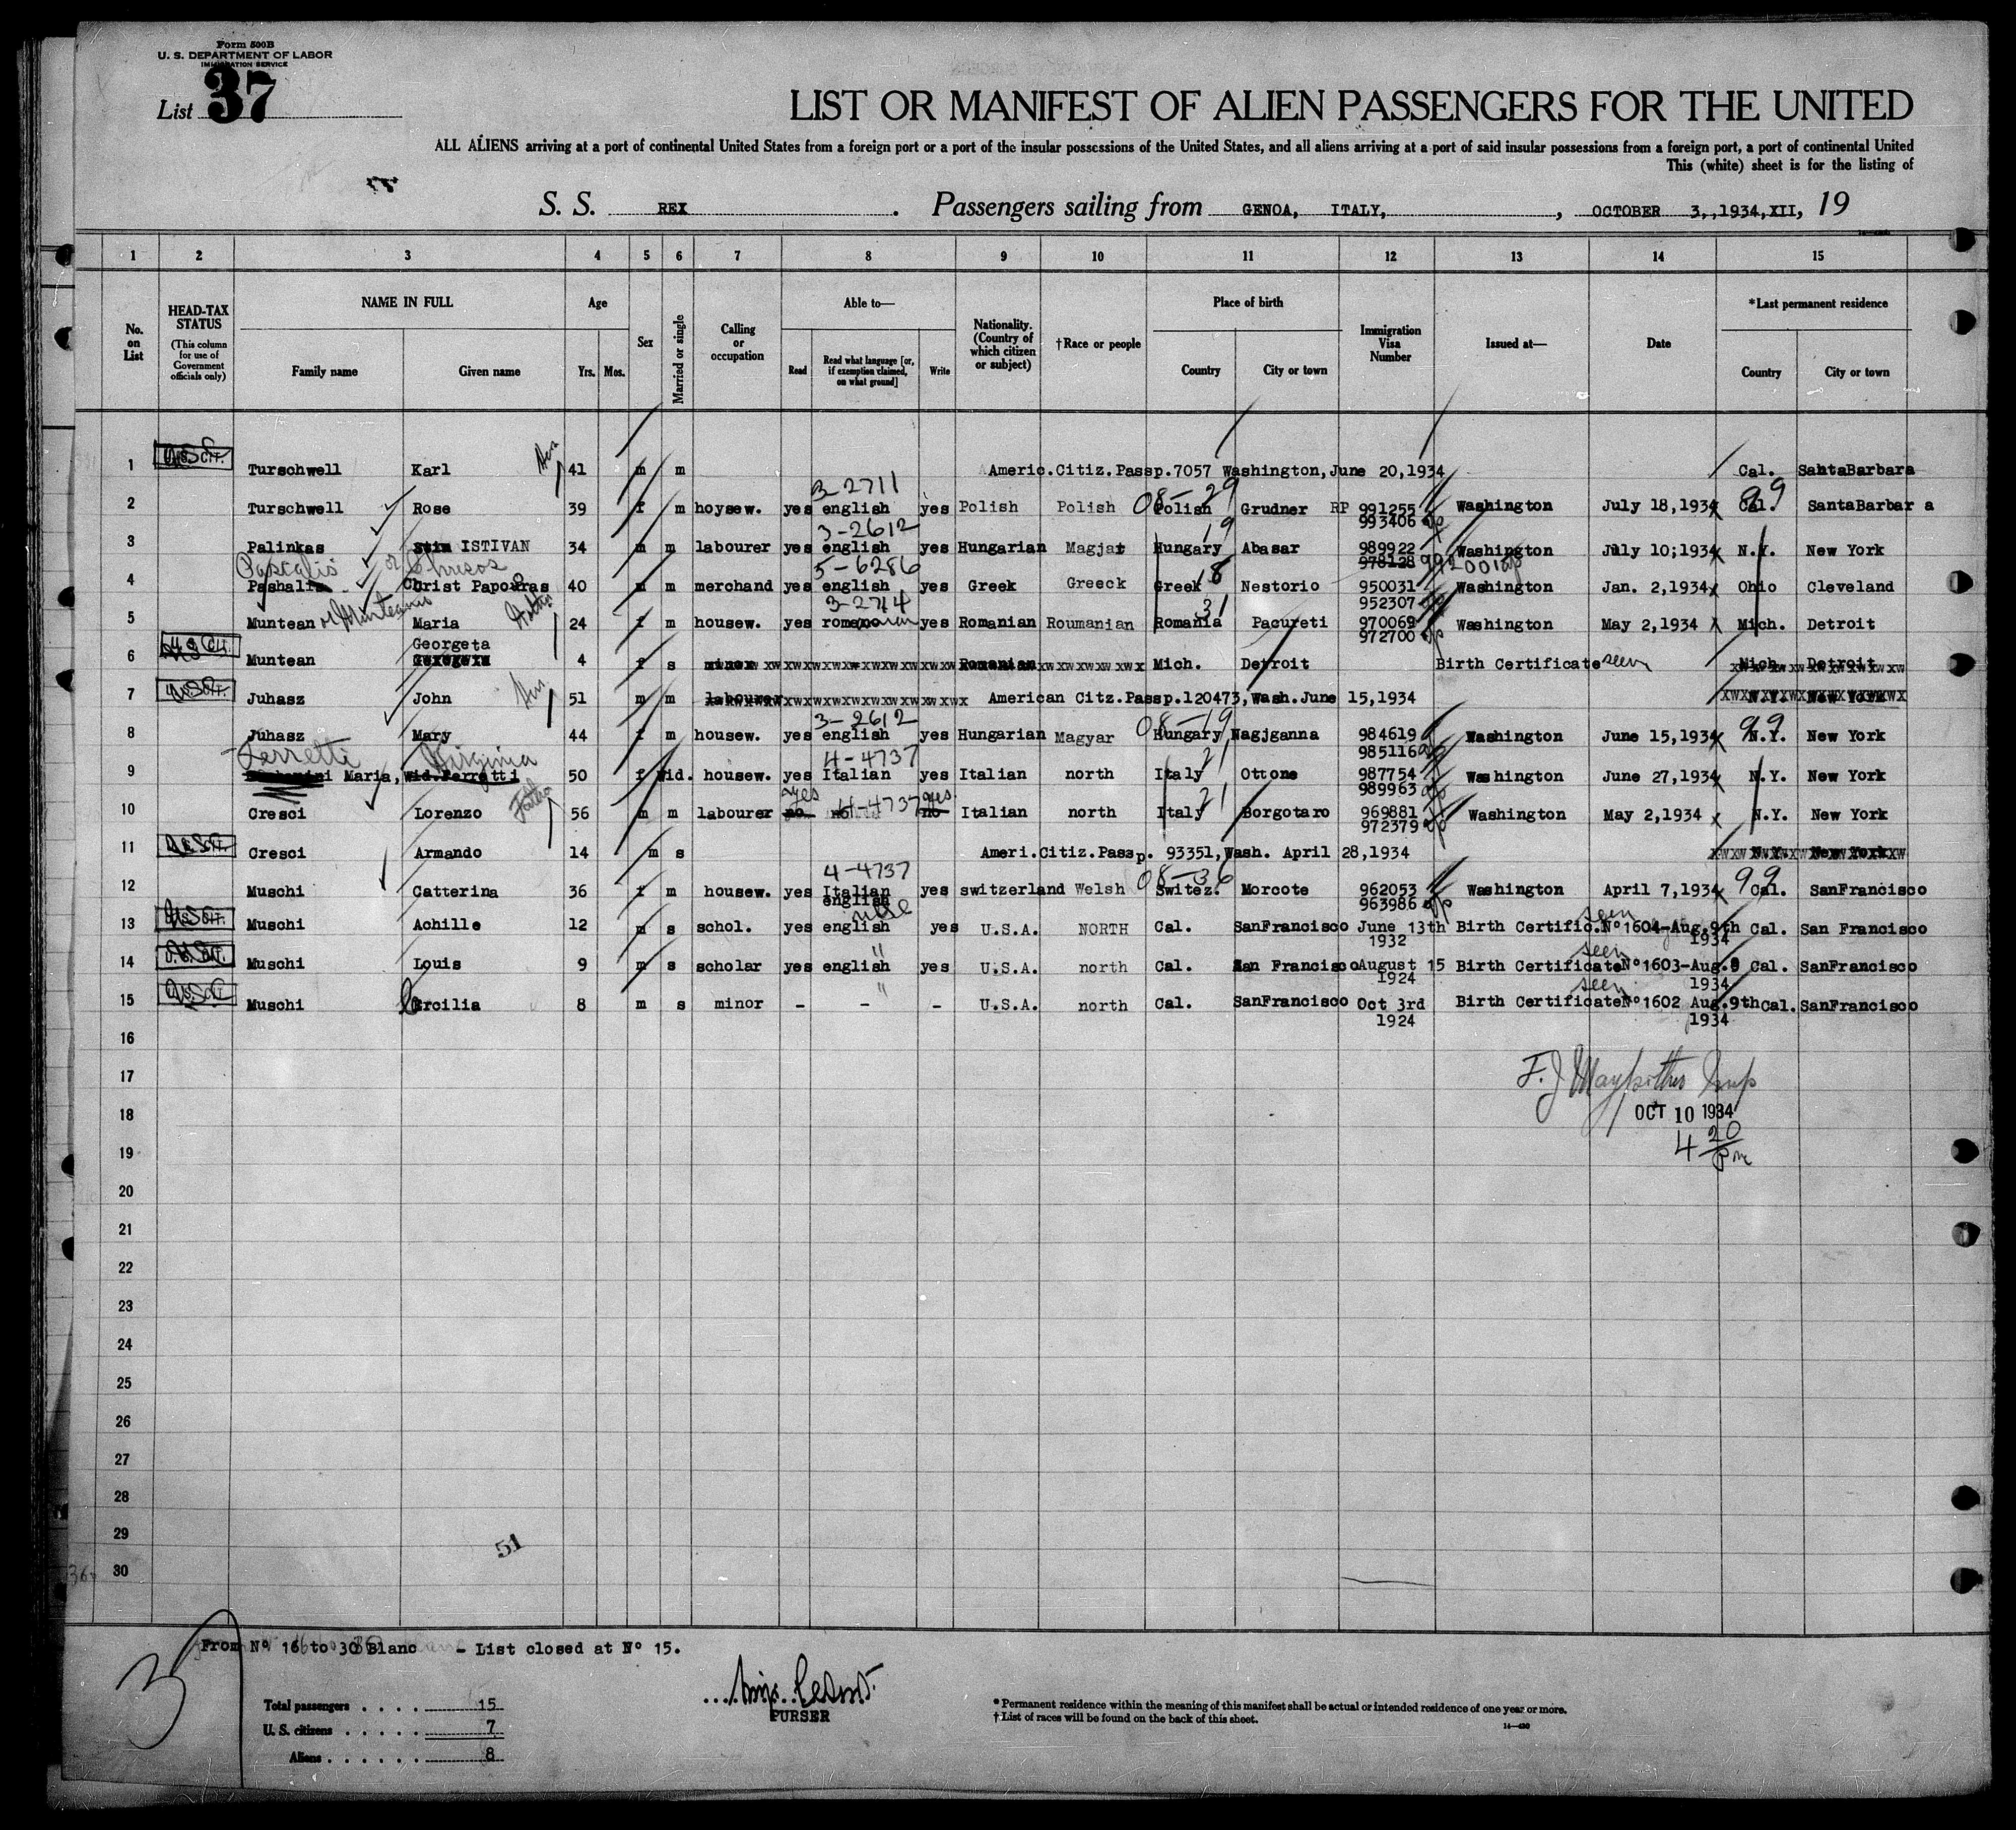 Form 500B
U. S. DEPARTMENT OF LABOR
IMMIGRATION SERVICE
List 37
LIST OR MANIFEST OF ALIEN PASSENGERS FOR THE UNITED
ALL ALIENS arriving at a port of continental United States from a foreign port or a port of the insular possessions of the United States, and all aliens arriving at a port of said insular possessions from a foreign port, a port of continental United
This (white) sheet is for the listing of
S. S. REX . Passengers sailing from GENOA, ITALY, , OCTOBER 3,,1934,XII, 19
1 2 3 4 5 6 7 8 9 10 11 12 13 14 15
No. on List
HEAD-TAX STATUS (This column for use of Government officials only)
NAME IN FULL Family name Given name
Age Yrs. Mos.
Sex
Married or single
Calling or occupation
Able to— Read Read what language [or, if exemption claimed, on what ground] Write
Nationality. (Country of which citizen or subject)
†Race or people
Place of birth Country City or town
Immigration Visa Number
Issued at—
Date
*Last permanent residence Country City or town
1 U.S. CIT. Turschwell Karl 41 m m Americ.Citiz.Passp.7057 Washington,June 20,1934 Cal. SantaBarbara
3-2711 08-29 99
2 Turschwell Rose 39 f m hoysew. yes english yes Polish Polish Polish Grudner RP 991255 Washington July 18,1934 Cal. SantaBarbar a
993406
3-2612 19
3 Palinkas ISTIVAN 34 m m labourer yes english yes Hungarian Magjar Hungary Abasar 989922 Washington July 10;1934 N.Y. New York
978128
Pascalis or Chrisos 5-6286 18
4 Pashalis Christ Papouras 40 m m merchand yes english yes Greek Greeck Greek Nestorio 950031 Washington Jan. 2,1934 Ohio Cleveland
952307
3-2714 31
5 Muntean or Munteanu Maria 24 f m housew. yes yes Romanian Roumanian Romania Pacureti 970069 Washington May 2,1934 Mich. Detroit
972700
Georgeta
6 U.S. CIT. Muntean 4 f s minor Romanian Mich. Detroit Birth Certificate seen Mich. Detroit
7 U.S. CIT. Juhasz John 51 m m labourer American Citz.Passp.120473,Wash.June 15,1934 N.Y. New York
3-2612 08-19 99
8 Juhasz Mary 44 f m housew. yes english yes Hungarian Magyar Hungary Nagjganna 984619 Washington June 15,1934 N.Y. New York
985116
Ferretti Virginia 4-4737 21
9 Maria, wid.Ferretti 50 f Wid. housew. yes Italian yes Italian north Italy Ottone 987754 Washington June 27,1934 N.Y. New York
989963
Father yes 4-4737 yes 21
10 Cresci Lorenzo 56 m m labourer no no no Italian north Italy Borgotaro 969881 Washington May 2,1934 N.Y. New York
972379
11 U.S. CIT. Cresci Armando 14 m s Ameri.Citiz.Passp. 93351,Wash. April 28,1934 N.Y. New York
4-4737 08-36 99
12 Muschi Catterina 36 f m housew. yes Italian yes switzerland Welsh Switez. Morcote 962053 Washington April 7,1934 Cal. SanFrancisco
english 963986
13 U.S. CIT. Muschi Achille 12 m s schol. yes english yes U.S.A. NORTH Cal. SanFrancisco June 13th Birth Certific. seen N°1604-Aug.9th Cal. San Francisco
1932 1934
14 U.S. CIT. Muschi Louis 9 m s scholar yes english " yes U.S.A. north Cal. San Francisco August 15 Birth Certificate seen N°1603-Aug.9 Cal. SanFrancisco
1924 1934
15 U.S. CIT. Muschi Ercilia 8 m s minor - - " - U.S.A. north Cal. SanFrancisco Oct 3rd Birth Certificate seen N°1602 Aug.9th Cal. SanFrancisco
1924 1934
16
17
18 OCT 10 1934
19 4 20 pm
20
21
22
23
24
25
26
27
28
29
51
30
From N° 16 to 30 Blanc - List closed at N° 15.
37
Total passengers . . . . 15
U. S. citizens . . . . . 7
Aliens . . . . . . 8
PURSER
* Permanent residence within the meaning of this manifest shall be actual or intended residence of one year or more.
† List of races will be found on the back of this sheet.
14—430